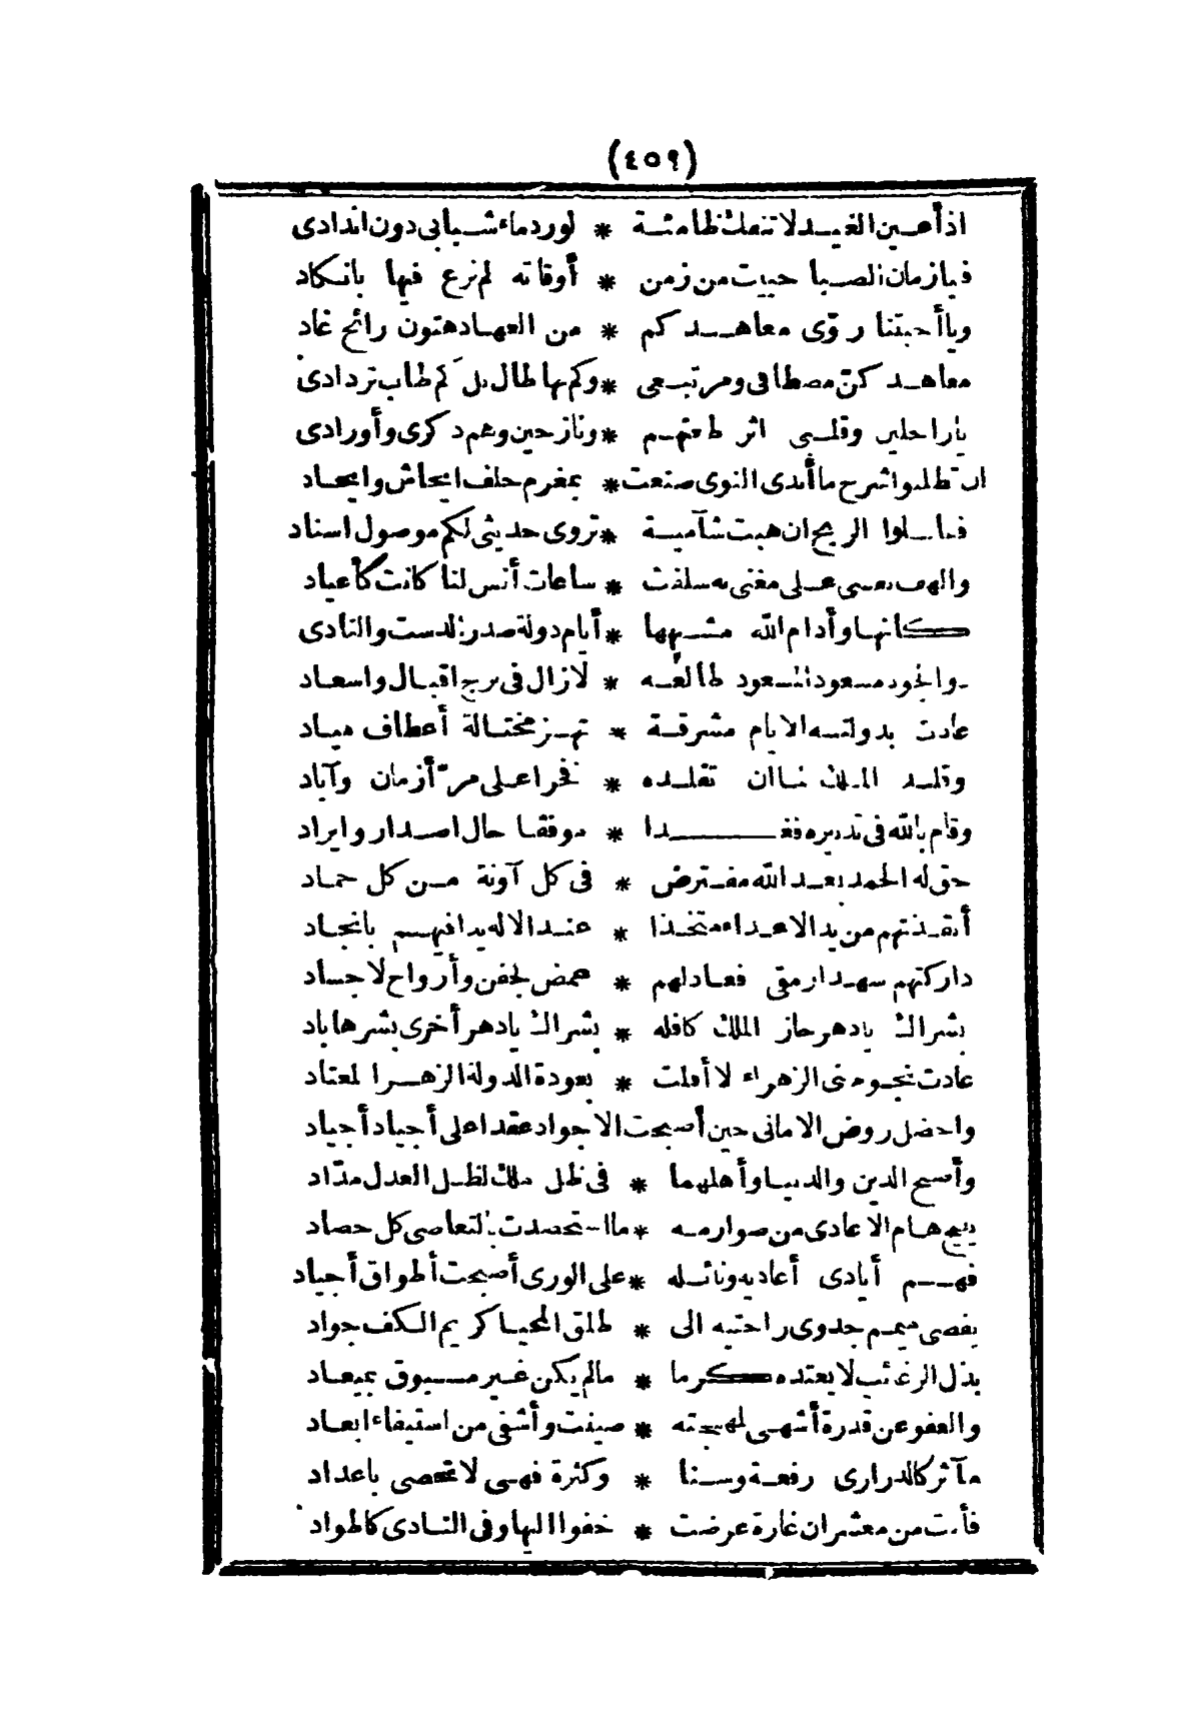 (٤٥٩)
اذ أعين الغيد لا تنفك ظامئة * لورد ماء شبابى دون اندادى
فيا زمان الصبا حييت من زمن * أوقاته لم نرع فيها بانكاد
ويا أحبتنا روّى معاهدكم * من العهاد هتون رائح غاد
معاهد كنّ مصطافى ومرتبعى * وكم بها طال بل كم طاب تردادى
يا راحلين وقلبى اثر ظعنهم * ونازحين وهم ذكرى وأورادى
ان تطلبوا شرح ما أبدى النوى صنعت * بمغرم حلف ايحاش وايعاد
فسائلوا الريح ان هبت شآمية * تروى حديثى لكم موصول اسناد
والهف نفسى على مغنى به سلفت * ساعات أنس لنا كانت كأعياد
كانها وأدام الله مشبهها * أيام دولة صدر الدست والنادى
والجود مسعود المسعود طالعه * لا زال فى برج اقبال واسعاد
عادت بدولته الايام مشرقة * تهز مختالة أعطاف مياد
وقلد الملك لما ان تقلده * فخرا على مرّ أزمان وآباد
وقام بالله فى تدبيره فغدا * موفقا حال اصدار وايراد
حق له الحمد بعد الله مفترض * فى كل آونة من كل حماد
أنقذتهم من يد الاعداء متخذا * عند الاله يدا فيهم بانجاد
داركتهم سهدا رمقى فعاد لهم * غمض لجفن وأرواح لاجساد
بشراك يا دهر حاز الملك كافله * بشراك يا دهر أخرى بشرها باد
عادت نجوم بنى الزهراء لا أفلت * بعودة الدولة الزهرا لمعتاد
واخضل روض الامانى حين أصبحت الاجواد عقدا على أجياد أجياد
وأصبح الدين والدنيا وأهلهما * فى ظل ملك لظل العدل مدّاد
يبيح هام الاعادى من صوارمه * ما استحصدت بالتعاصى كل حصاد
فهم أيادى أعاديه ونائله * على الورى أصبحت أطواق أجياد
يفضى ميمم جدوى راحتيه الى * طلق المحيا كريم الكف جواد
بذل الرغائب لا يعتده كرما * ما لم يكن غير مسبوق بميعاد
والعفو عن قدرة أشهى لمهجته * صينت وأشفى من استيفاء ابعاد
مآثر كالدرارى رفعة وسنا * وكثرة فهى لا تحصى باعداد
فأنت من معشر ان غارة عرضت * خفوا اليها وفى النادى كاطواد